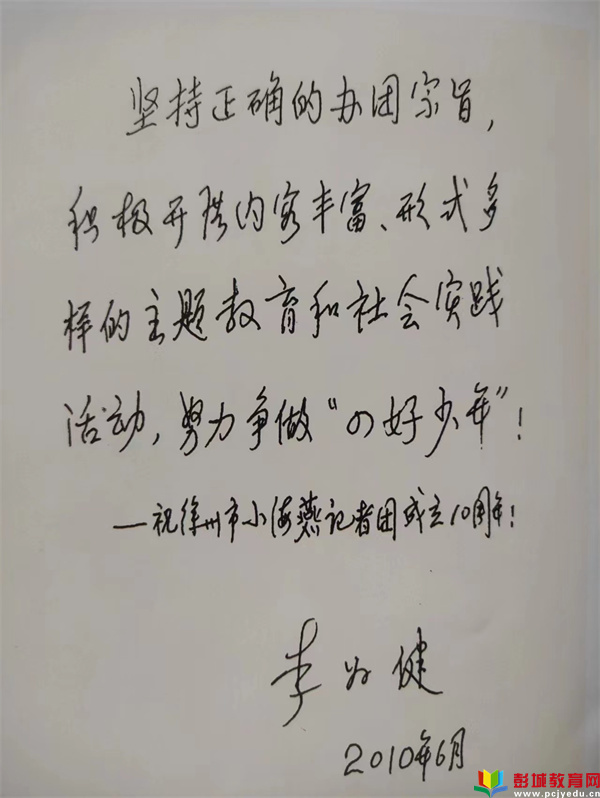 坚持正确的办团宗旨，
积极开搭内容丰富、形式多
样的主题教育和社会实践
活动，努力争做“四好少年”！
—祝徐州市小海燕记者团成立10周年！
李为健
2010年6月
彭城教育网
www.pcjyedu.cn